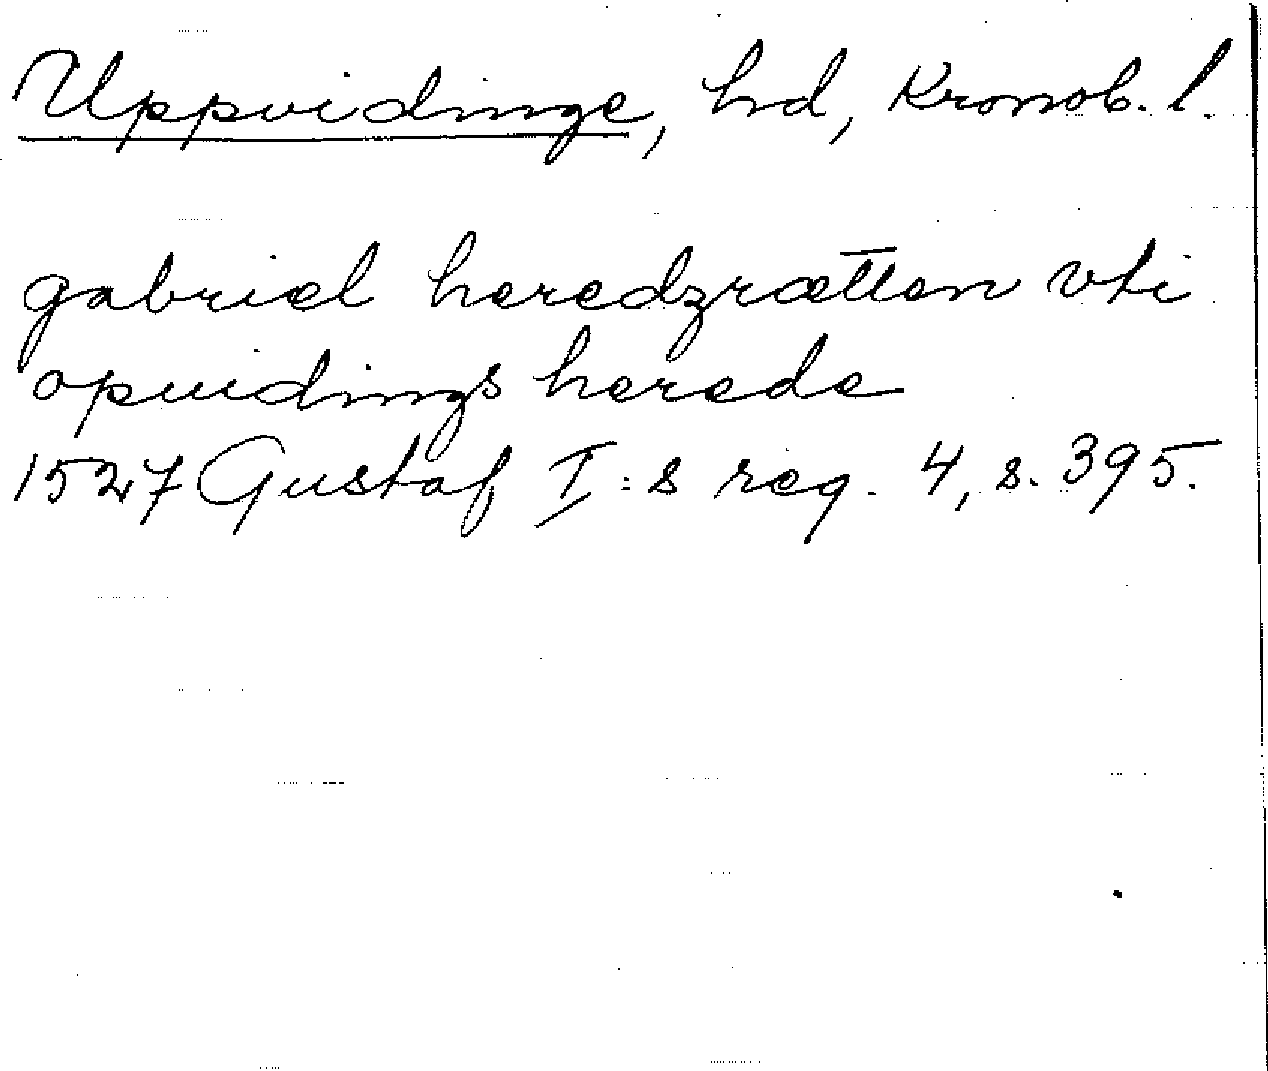 Uppvidinge, hd, Kronob. l.
gabriel heredzrætten vti
opuidings herede
1527 Gustaf I:s reg. 4, s. 395.